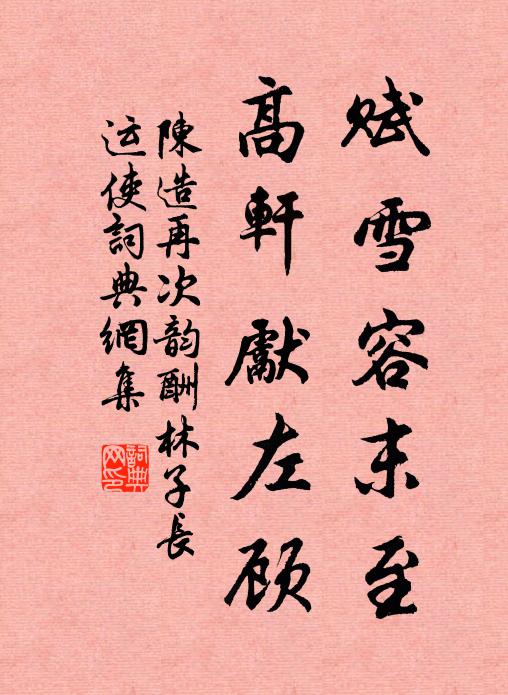 賦雪容末至
高軒獻左顾
陳造再次韵酬林子長
运使詞典網集
詞典网印